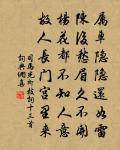 屬車隱隱遠如雷
陳後愁眉久不開
楊花都不知人意
故入長門宮里來
司馬光柳枝詞十三首